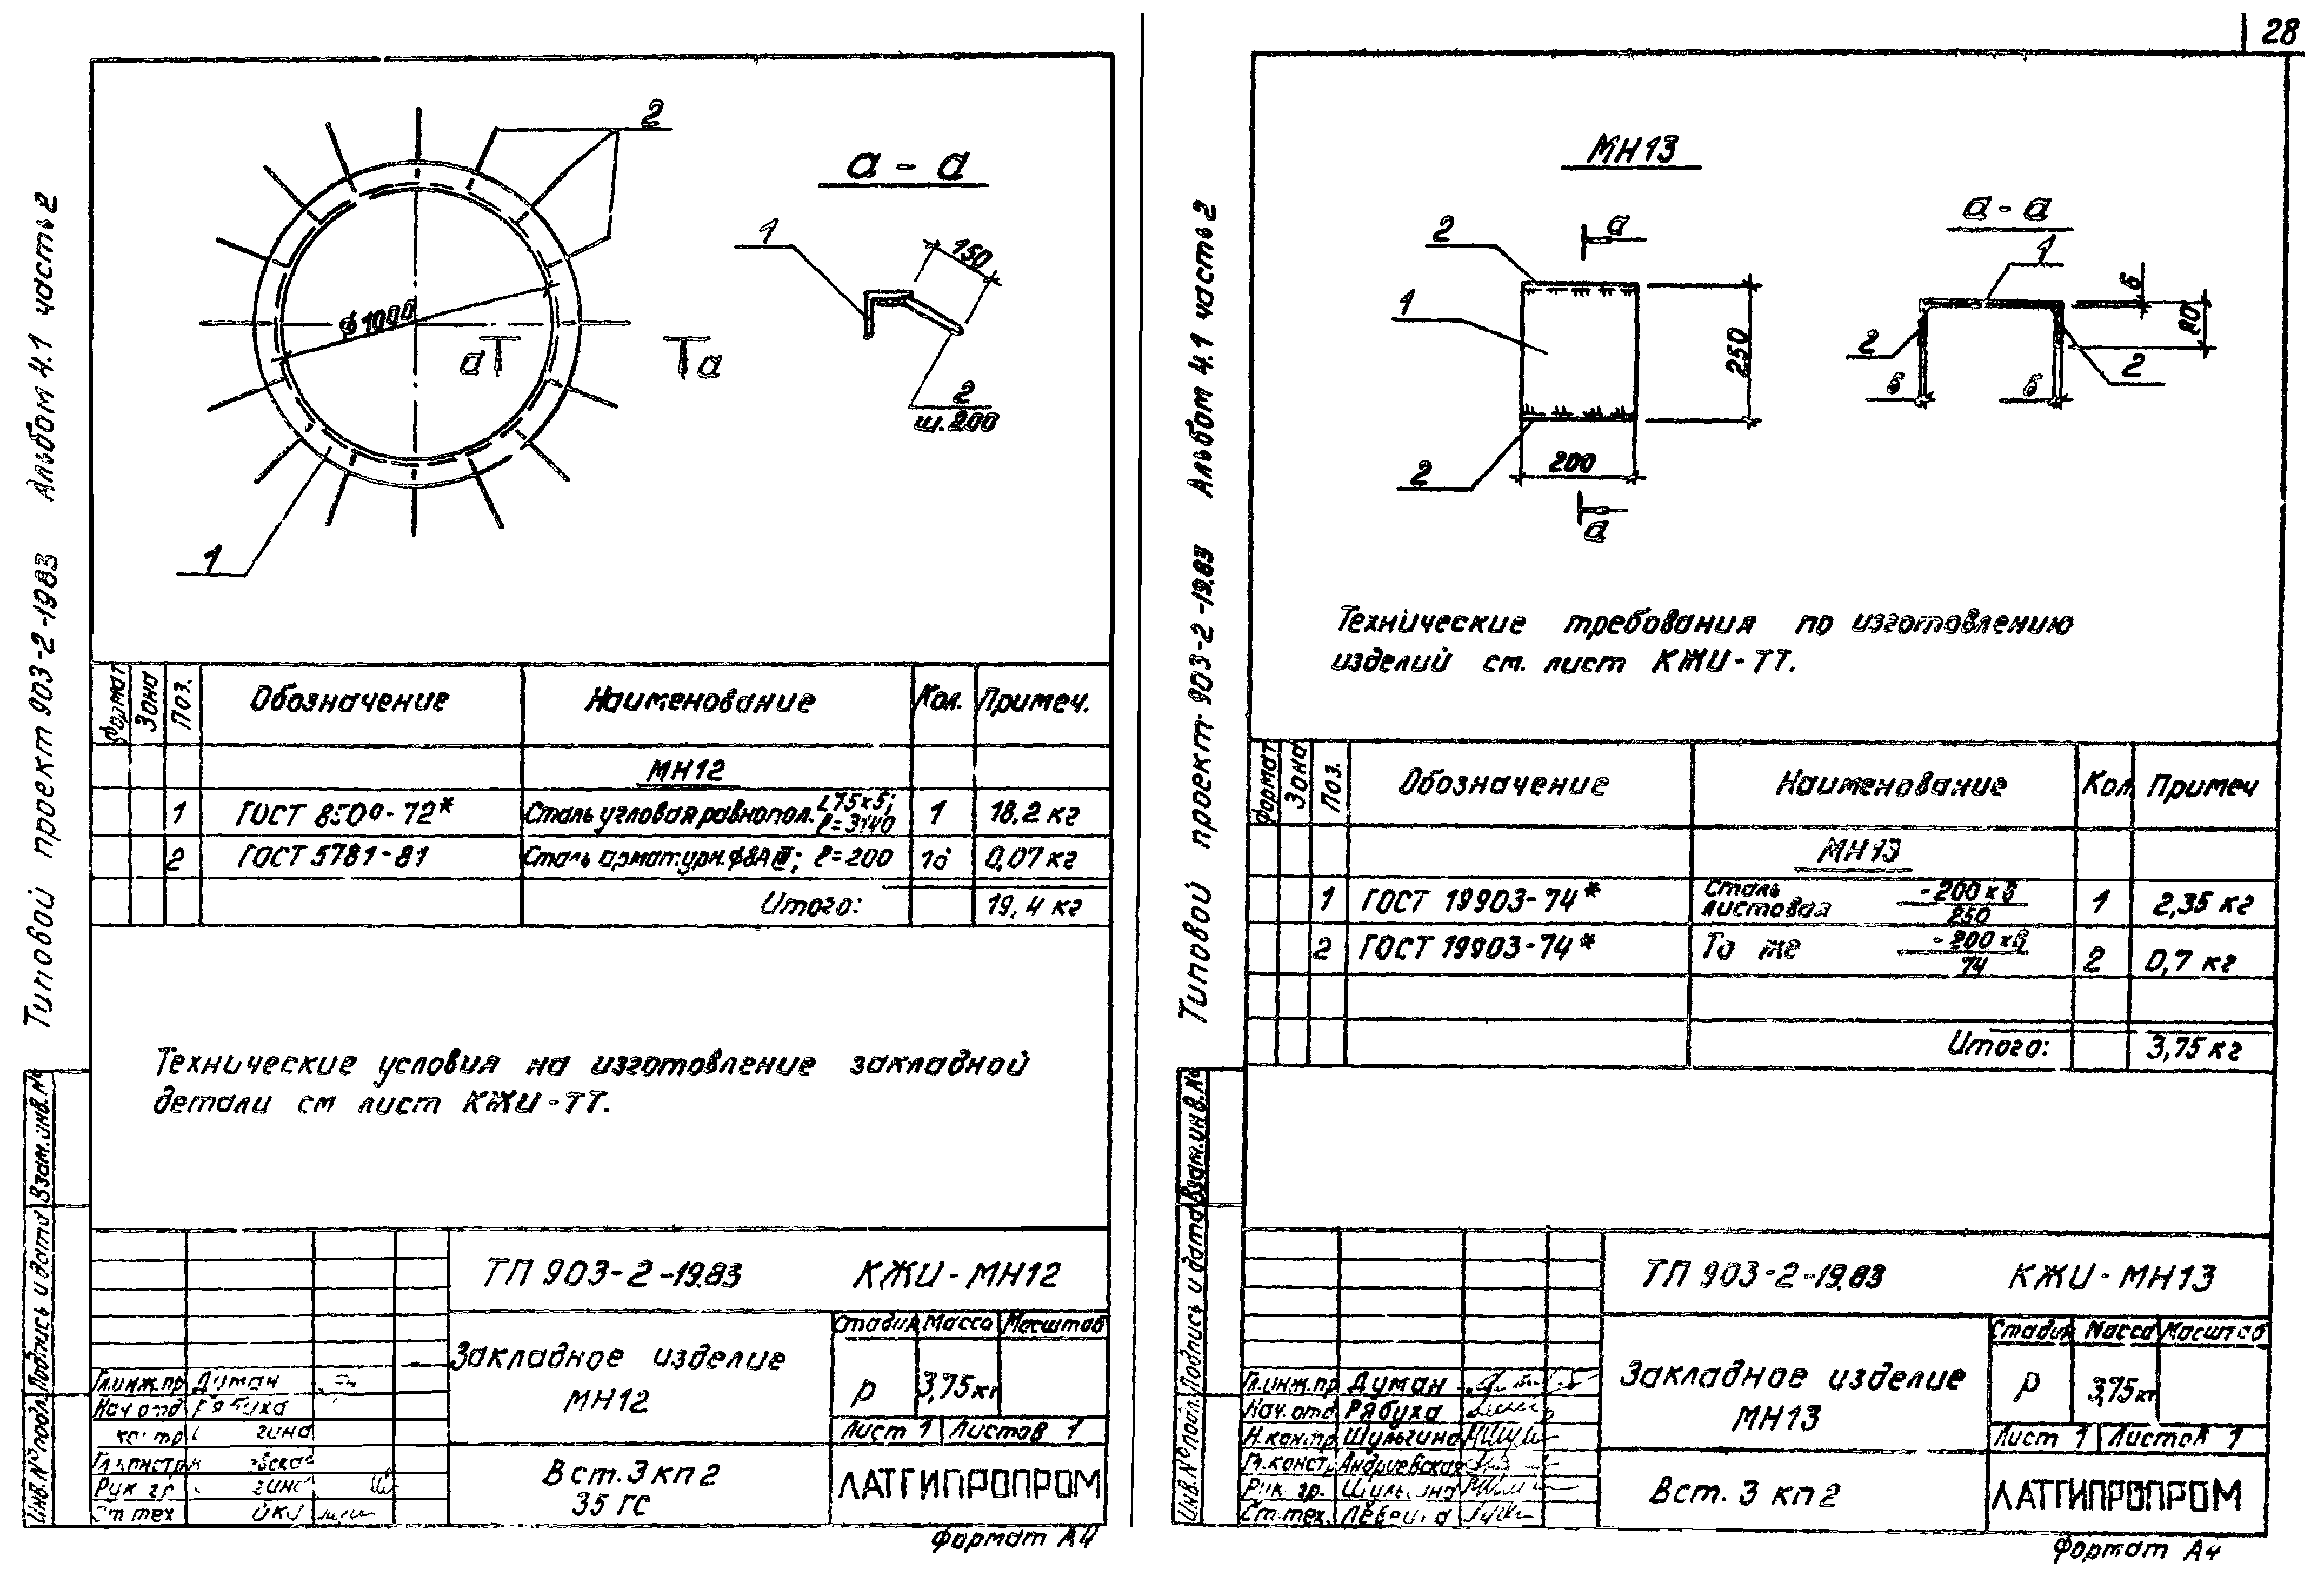 28
Типовой проект 903-2-1983 Альбом 4.1 часть 2
2
1
ф1000
а
а
а - а
1
150
2
ш.200
Формат Зона Поз. Обозначение Наименование Кол. Примеч.
МН12
1 ГОСТ 8509-72* Сталь угловая равнопол. L75x5; ℓ=3140 1 18,2 кг
2 ГОСТ 5781-81 Сталь арматурн. ф8АIII; ℓ=200 0,07 кг
Итого: 19,4 кг
Технические условия на изготовление закладной
детали см лист КЖИ-ТТ.
Взам.инв.№
Подпись и дата
Инв.№подл.
ТП 903-2-19.83 КЖИ-МН12
Закладное изделие
МН12
Стадия Масса Масштаб
р 3,75кг
Лист 1 Листов 1
Вст.3 кп 2
35 ГС
ЛАТГИПРОПРОМ
Гл.инж.пр Думан
Нач отд Рябуха
Рук гр.
Ст тех
Формат А4
Типовой проект 903-2-19.83 Альбом 4.1 часть 2
МН13
а
2
1
2
250
200
а
а - а
1
6
80
2
2
6
6
Технические требования по изготовлению
изделий см. лист КЖИ-ТТ.
Формат Зона Поз. Обозначение Наименование Кол Примеч
МН13
1 ГОСТ 19903-74* Сталь листовая -200х6/250 1 2,35 кг
2 ГОСТ 19903-74* То же -200х6/74 2 0,7 кг
Итого: 3,75 кг
Взам.инв.№
Подпись и дата
Инв.№подл.
ТП 903-2-19.83 КЖИ-МН13
Закладное изделие
МН13
Стадия Масса Масштаб
р 3,75кг
Лист 1 Листов 1
Вст. 3 кп 2
ЛАТГИПРОПРОМ
Гл.инж.пр Думан
Нач.отд Рябуха
Н.контр Шульгина
Гл.констр Андриевская
Рук. гр.
Ст.тех.
Формат А4